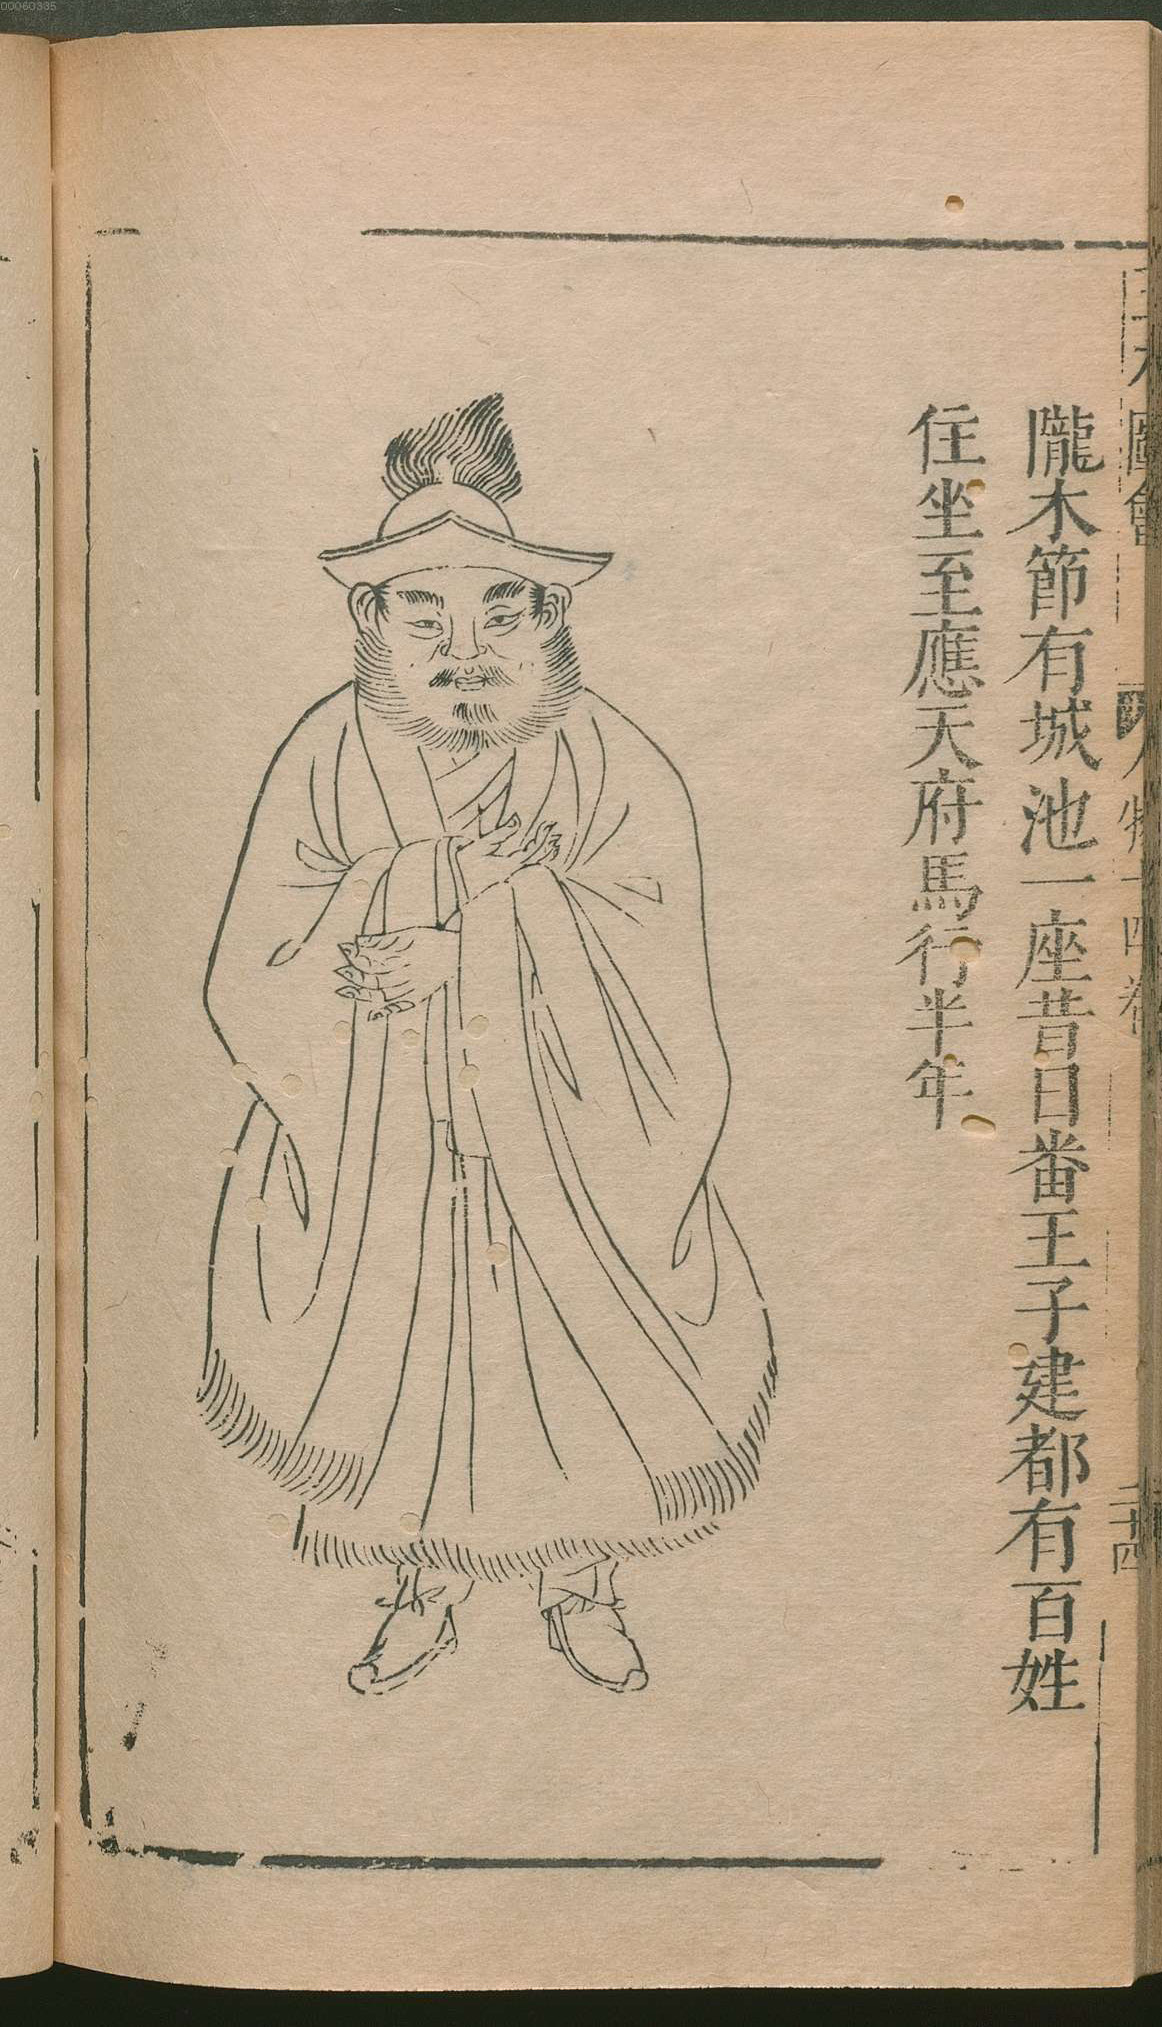 隴木節有城池一座昔日番王子建都有百姓
住坐至應天府馬行半年
圖會
人物十四卷
二十四
00060335